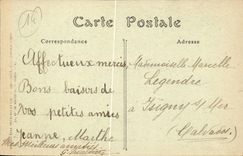 14
Carte Postale
Correspondance
Adresse
Affectueux mercis
Bons baisers de
Vos petites amies
Jeanne, Marthe
Mes meilleures amitiés
Mademoiselle Marcelle
Legendre
à Isigny s/ Mer
Calvados.